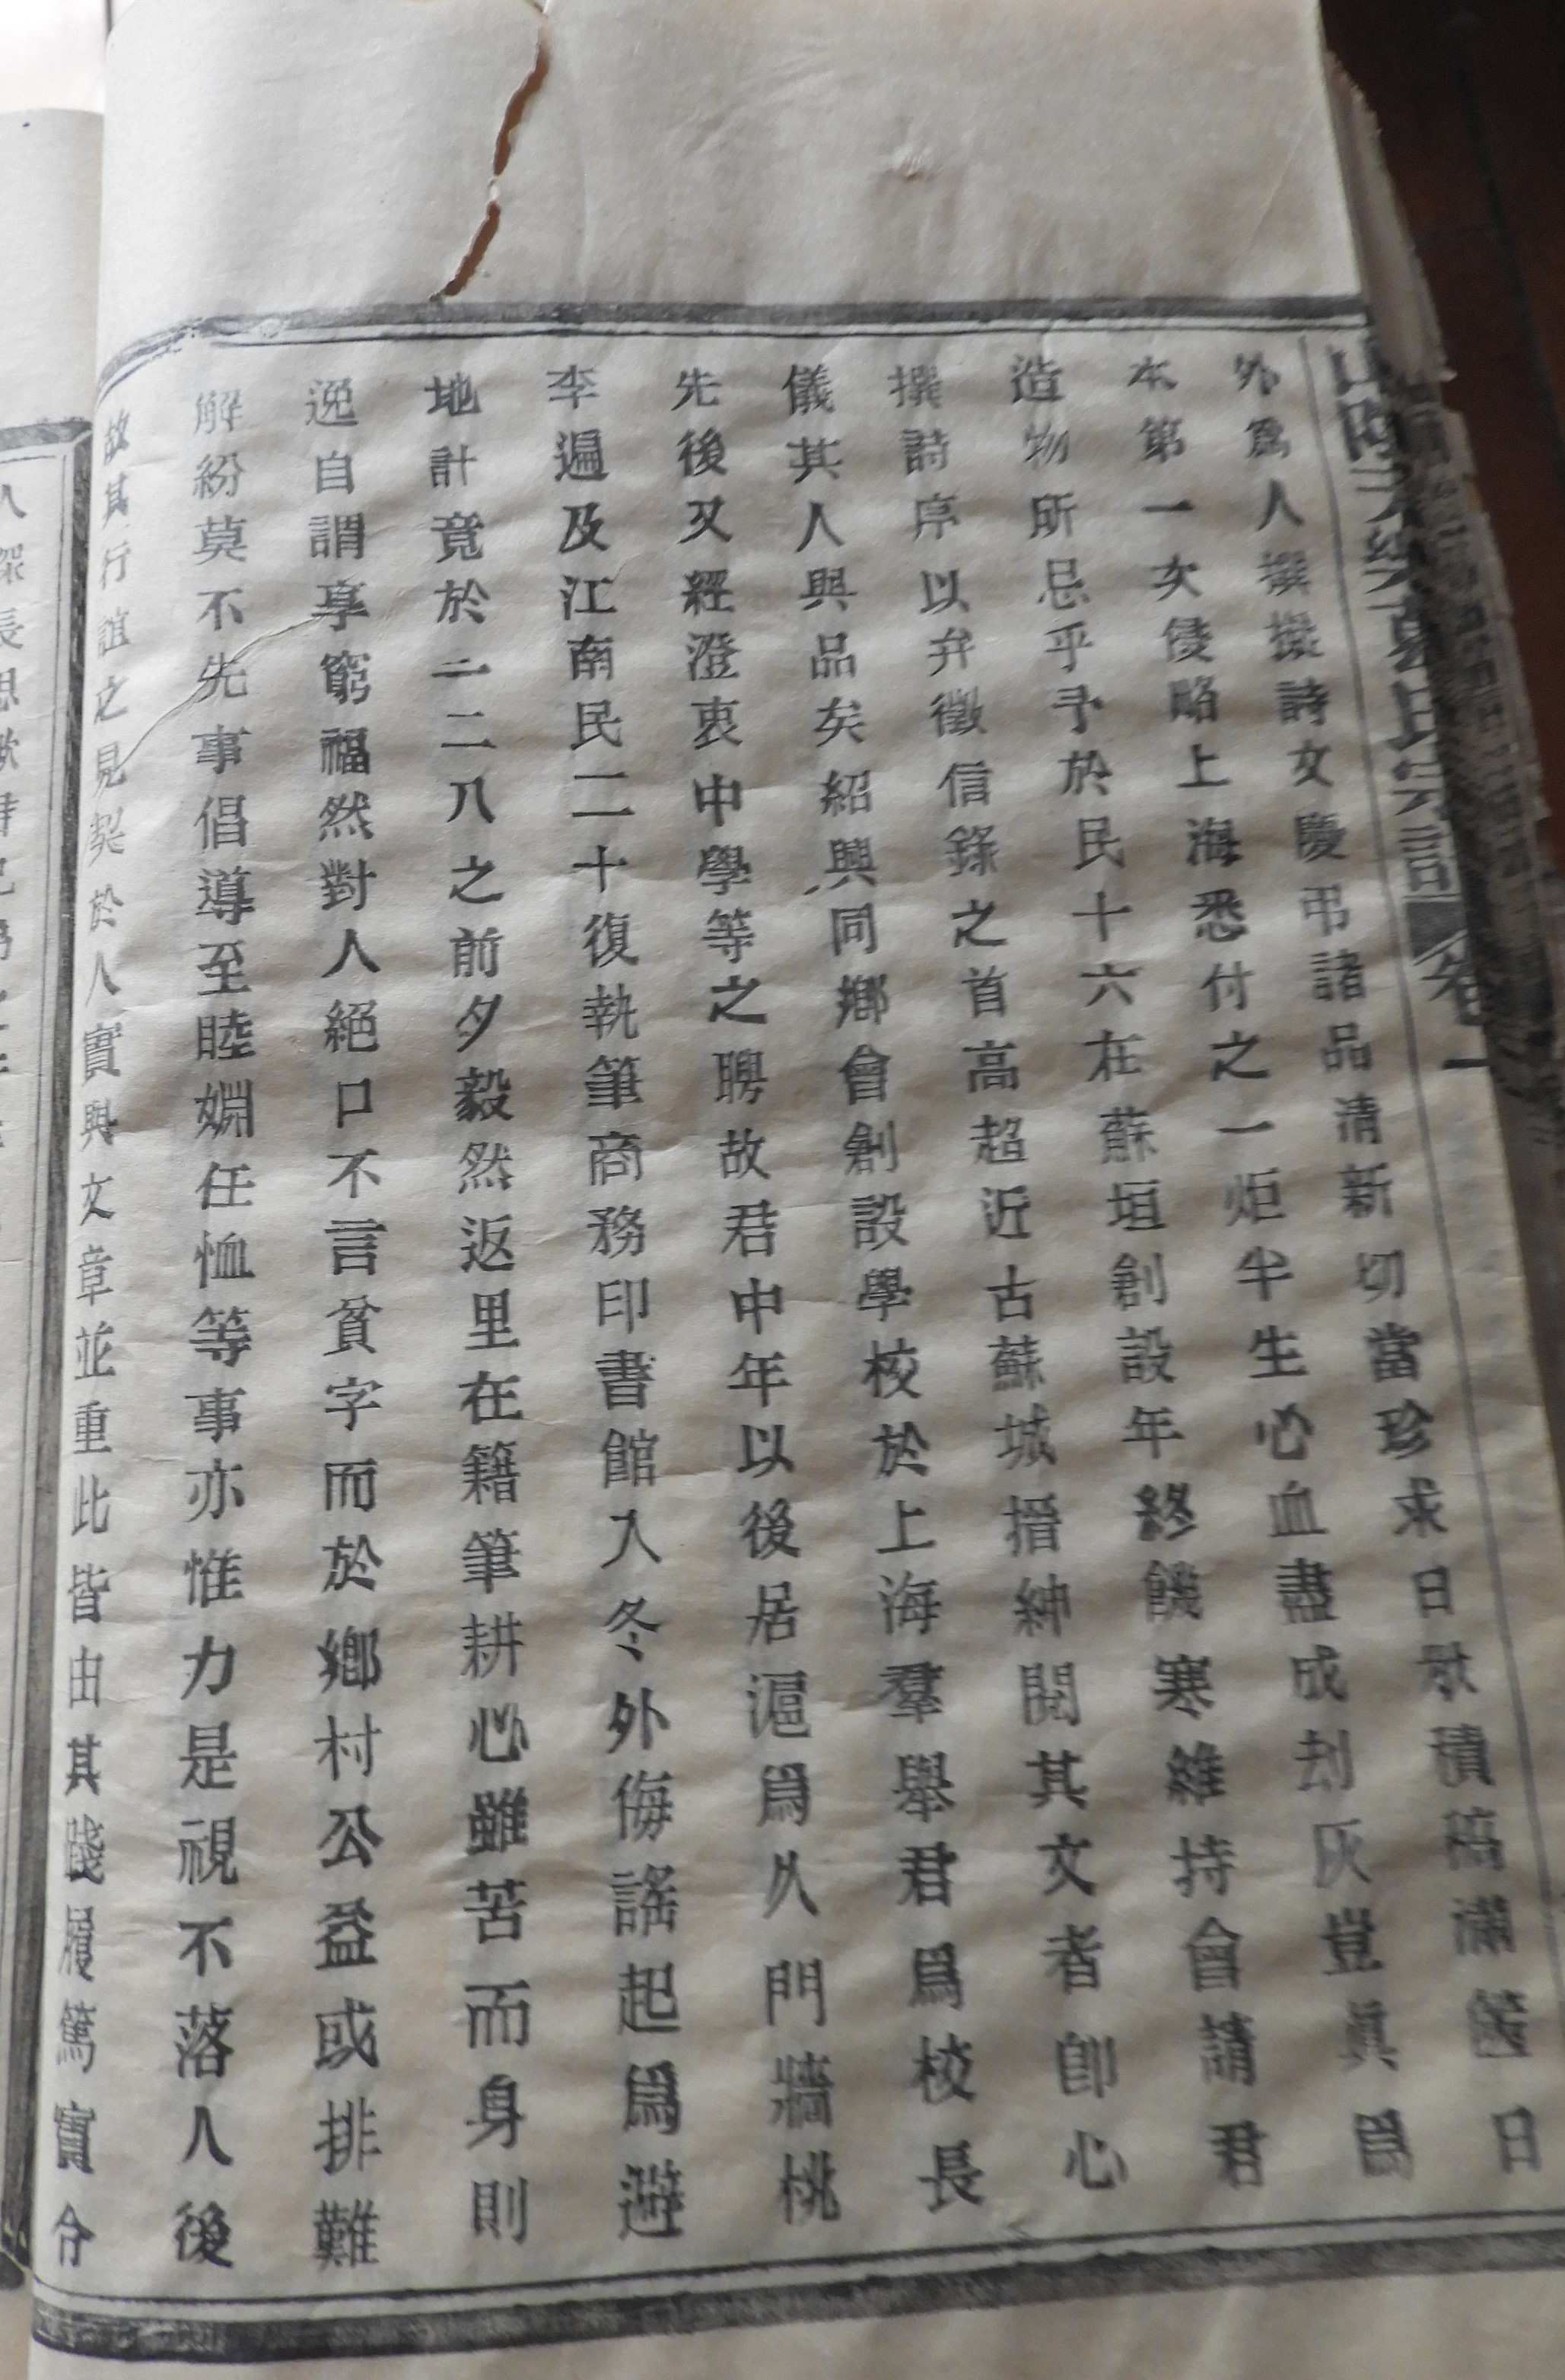 山陰天樂葛氏宗譜 卷一
外爲人撰擬詩文慶弔諸品清新切當珍求日衆積稿滿篋日
本第一次侵略上海悉付之一炬半生心血盡成刦灰豈眞爲
造物所忌乎予於民十六在蘇垣創設年終饑寒維持會請君
撰詩序以弁徵信錄之首高超近古蘇城搢紳閱其文者卽心
儀其人與品矣紹興同鄉會創設學校於上海羣舉君爲校長
先後又經澄衷中學等之聘故君中年以後居滬爲久門牆桃
李遍及江南民二十復執筆商務印書館入冬外侮謠起爲避
地計竟於一二八之前夕毅然返里在籍筆耕心雖苦而身則
逸自謂享窮福然對人絕口不言貧字而於鄉村公益或排難
解紛莫不先事倡導至睦婣任恤等事亦惟力是視不落人後
故其行誼之見契於人實與文章並重此皆由其踐履篤實令